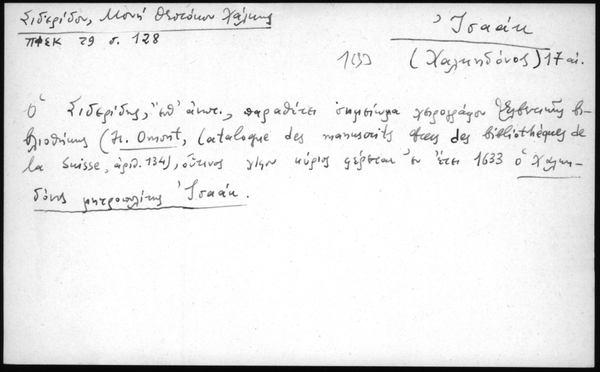 Σιδερίδου, Μονή Θεοτόκου Χάλκης
ΠΦΕΚ 29 σ. 128
Ἰσαάκ
1633
(Χαλκηδόνος) 17 αἰ.
Ὁ Σιδερίδης, ἔνθ' ἀνωτ., παραθέτει σημείωμα χειρογράφου Ἑλβετικῆς βι-
βλιοθήκης (H. Omont, Catalogue des manuscrits grecs des bibliothèques de
la Suisse, ἀριθ. 134), οὗτινος κύριος φέρεται ἐν ἔτει 1633 ὁ Χαλκη-
δόνος μητροπολίτης Ἰσαάκ.